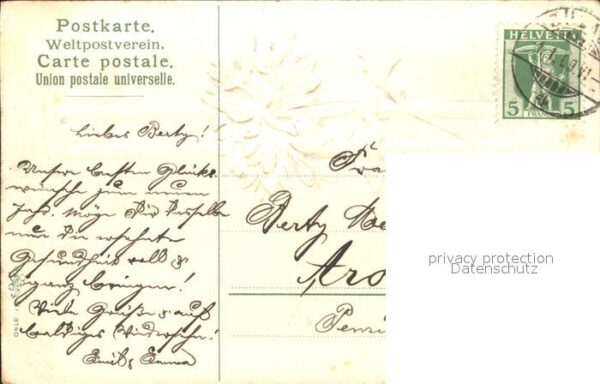 Postkarte.
Weltpostverein.
Carte postale.
Union postale universelle.
HELVETIA
5 5
FRANCO
Liebes Berty!
Unsere besten Glück-
wünsche zum neuen
Jahr. Möge Dir dasselbe
nur die ersehnte
Gesundheit voll &
ganz bringen!
Viele Grüße & auf
baldiges Wiedersehn!
Emil & Emma
Fra
Berty
Aro
Pensi
privacy protection
Datenschutz